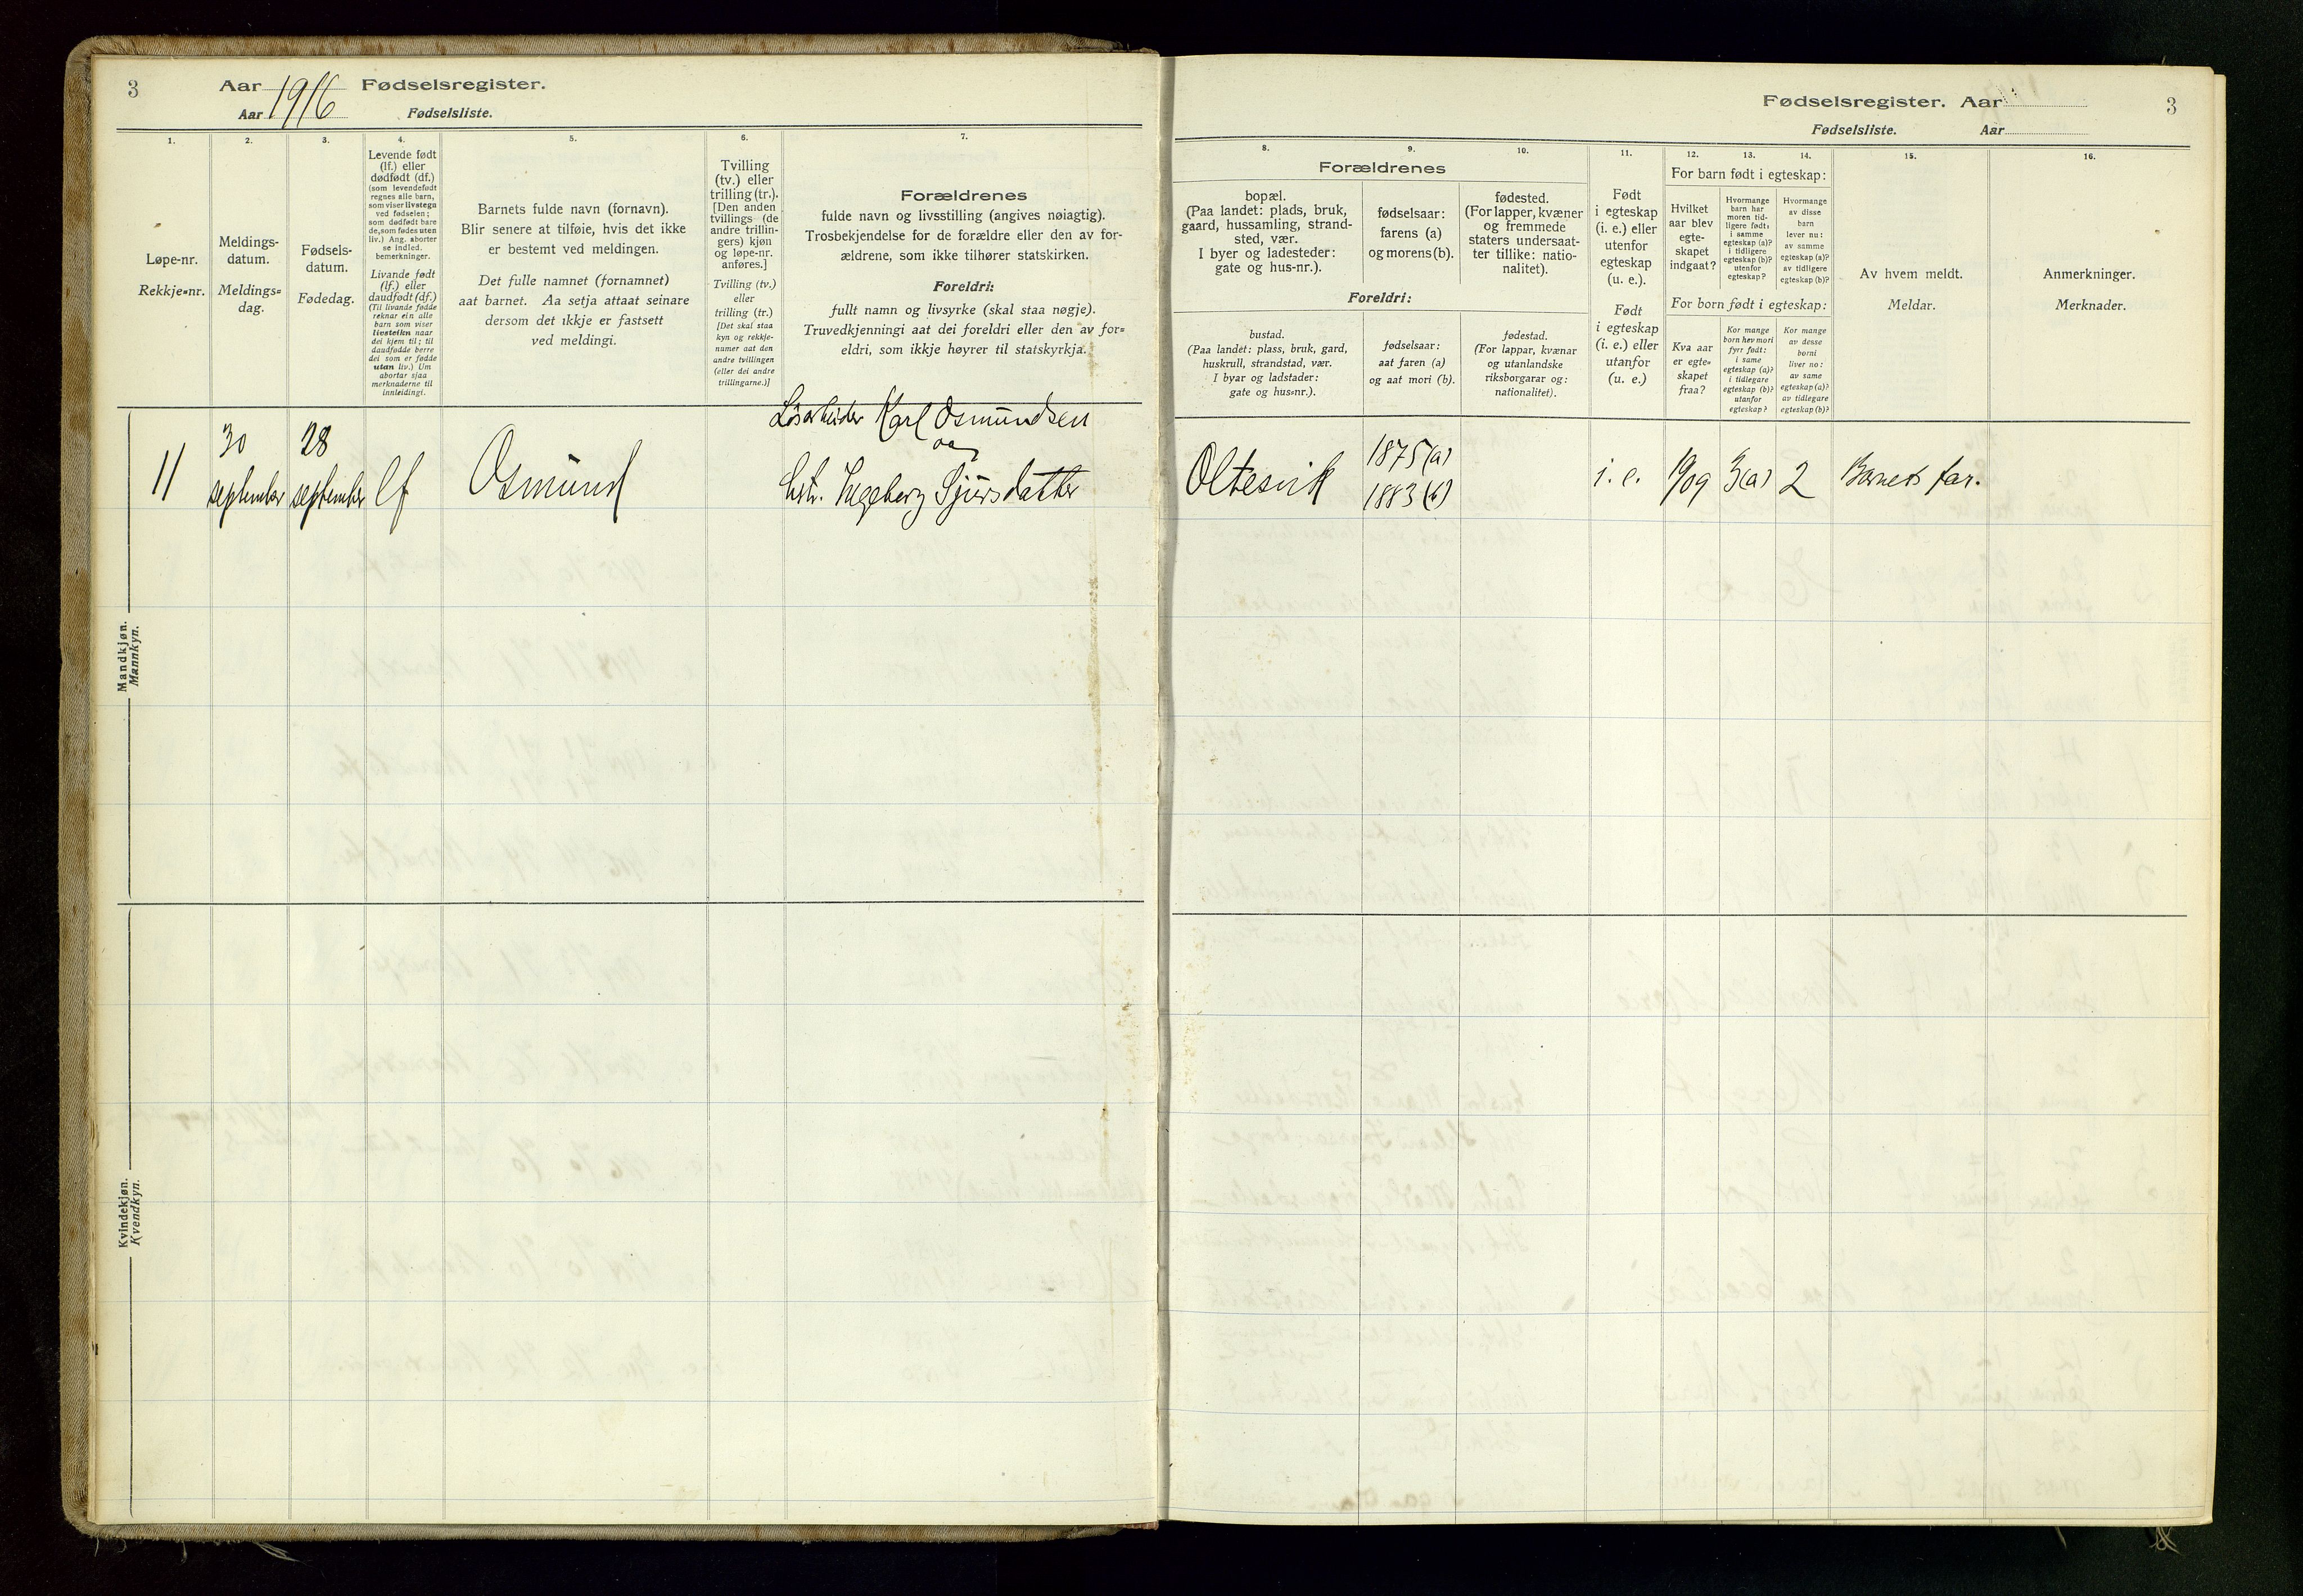 3
Aar 1916 Fødselsregister.
Aar Fødselsliste.
1.
Løpe-nr.
Rekkje=nr.
2.
Meldings-
datum.
Meldings=
dag.
3.
Fødsels-
datum.
Fødedag.
4.
Levende født
(lf.) eller
dødfødt (df.)
(som levendefødt
regnes alle barn,
som viser livstegn
ved fødselen;
som dødfødt bare
de, som fødes uten
liv.) Ang. aborter
se indled.
bemerkninger.
Livande født
(lf.) eller
daudfødt (df.)
(Til livande fødde
reknar ein alle
barn som viser
livsteikn naar
dei kjem til; til
daudfødde berre
dei som er fødde
utan liv.) Um
abortar sjaa
merknaderne til
innleidingi.
5.
Barnets fulde navn (fornavn).
Blir senere at tilføie, hvis det ikke
er bestemt ved meldingen.
Det fulle namnet (fornamnet)
aat barnet. Aa setja attaat seinare
dersom det ikkje er fastsett
ved meldingi.
6.
Tvilling
(tv.) eller
trilling (tr.).
[Den anden
tvillings (de
andre trillin-
gers) kjøn
og løpe-nr.
anføres.]
Tvilling (tv.)
eller
trilling (tr.)
[Det skal staa
kyn og rekkje-
numer aat den
andre tvillingen
(eller dei andre
trillingarne.)]
7.
Forældrenes
fulde navn og livsstilling (angives nøiagtig).
Trosbekjendelse for de forældre eller den av for-
ældrene, som ikke tilhører statskirken.
Foreldri:
fullt namn og livsyrke (skal staa nøgje).
Truvedkjenningi aat dei foreldri eller den av for=
eldri, som ikkje høyrer til statskyrkja.
Mandkjøn.
Mannkyn.
11
30
september
28
september
lf
Osmund
Løsarbeider Karl Osmundsen
og
hstr. Ingeborg Sjursdatter
Kvindekjøn.
Kvendkyn.
Fødselsregister. Aar
3
Fødselsliste. Aar
8.
9.
10.
Forældrenes
bopæl.
(Paa landet: plads, bruk,
gaard, hussamling, strand-
sted, vær.
I byer og ladesteder:
gate og hus-nr.).
fødselsaar:
farens (a)
og morens (b).
fødested.
(For lapper, kvæner
og fremmede
staters undersaat-
ter tillike: natio-
nalitet).
Foreldri:
bustad.
(Paa landet: plass, bruk, gard,
huskrull, strandstad, vær.
I byar og ladstader:
gate og hus=nr.).
fødselsaar:
aat faren (a)
og aat mori (b).
fødestad.
(For lappar, kvænar
og utanlandske
riksborgarar og:
nationalitet).
11.
Født
i egteskap
(i. e.) eller
utenfor
egteskap
(u. e.).
Født
i egteskap
(i. e.) eller
utanfor
(u. e.)
12.
13.
14.
For barn født i egteskap:
Hvilket
aar blev
egte-
skapet
indgaat?
Hvormange
barn har
moren tid-
ligere født:
i samme
egteskap (a)?
i tidligere
egteskap (b)?
utenfor
egteskap?
Hvormange
av disse
barn
lever nu:
av samme
egteskap (a)?
av tidligere
egteskap (b)?
For born født i egteskap:
Kva aar
er egte=
skapet
fraa?
Kor mange
born hev mori
fyrr født:
i same
egteskap (a)?
i tidlegare
egteskap (b)?
utanfor
egteskap?
Kor mange
av desse
borni
liver no:
av same
egteskap (a)?
av tidlegare
egteskap (b)?
15.
Av hvem meldt.
Meldar.
16.
Anmerkninger.
Merknader.
Oltesvik
1875 (a)
1883 (b)
i. e.
1909
3(a)
2
Barnets far.